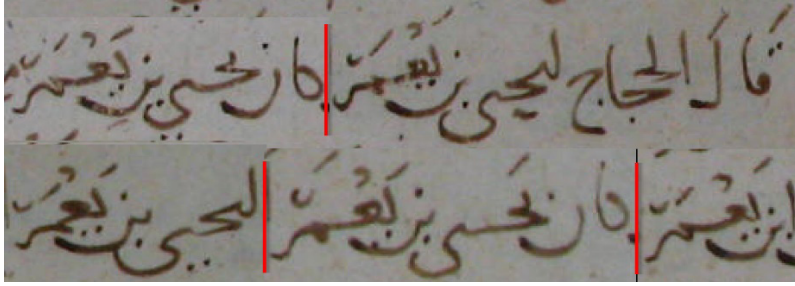 قال الحجاج ليحيى بن يَعْمَرَ كان يحيى بن يَعْمَرَ
ابن يَعْمَرَ كان يَحيى بن يَعْمَرَ ليحيى بن يَعْمَرَ